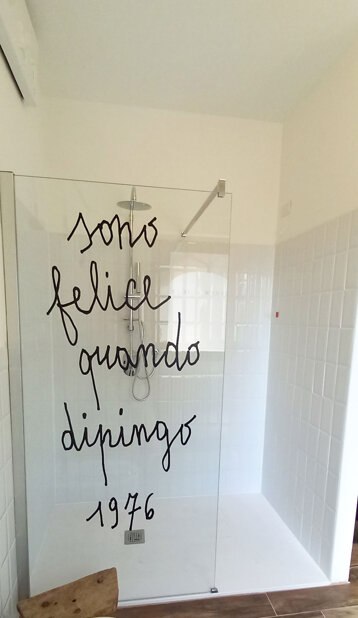 sono
felice
quando
dipingo
1976